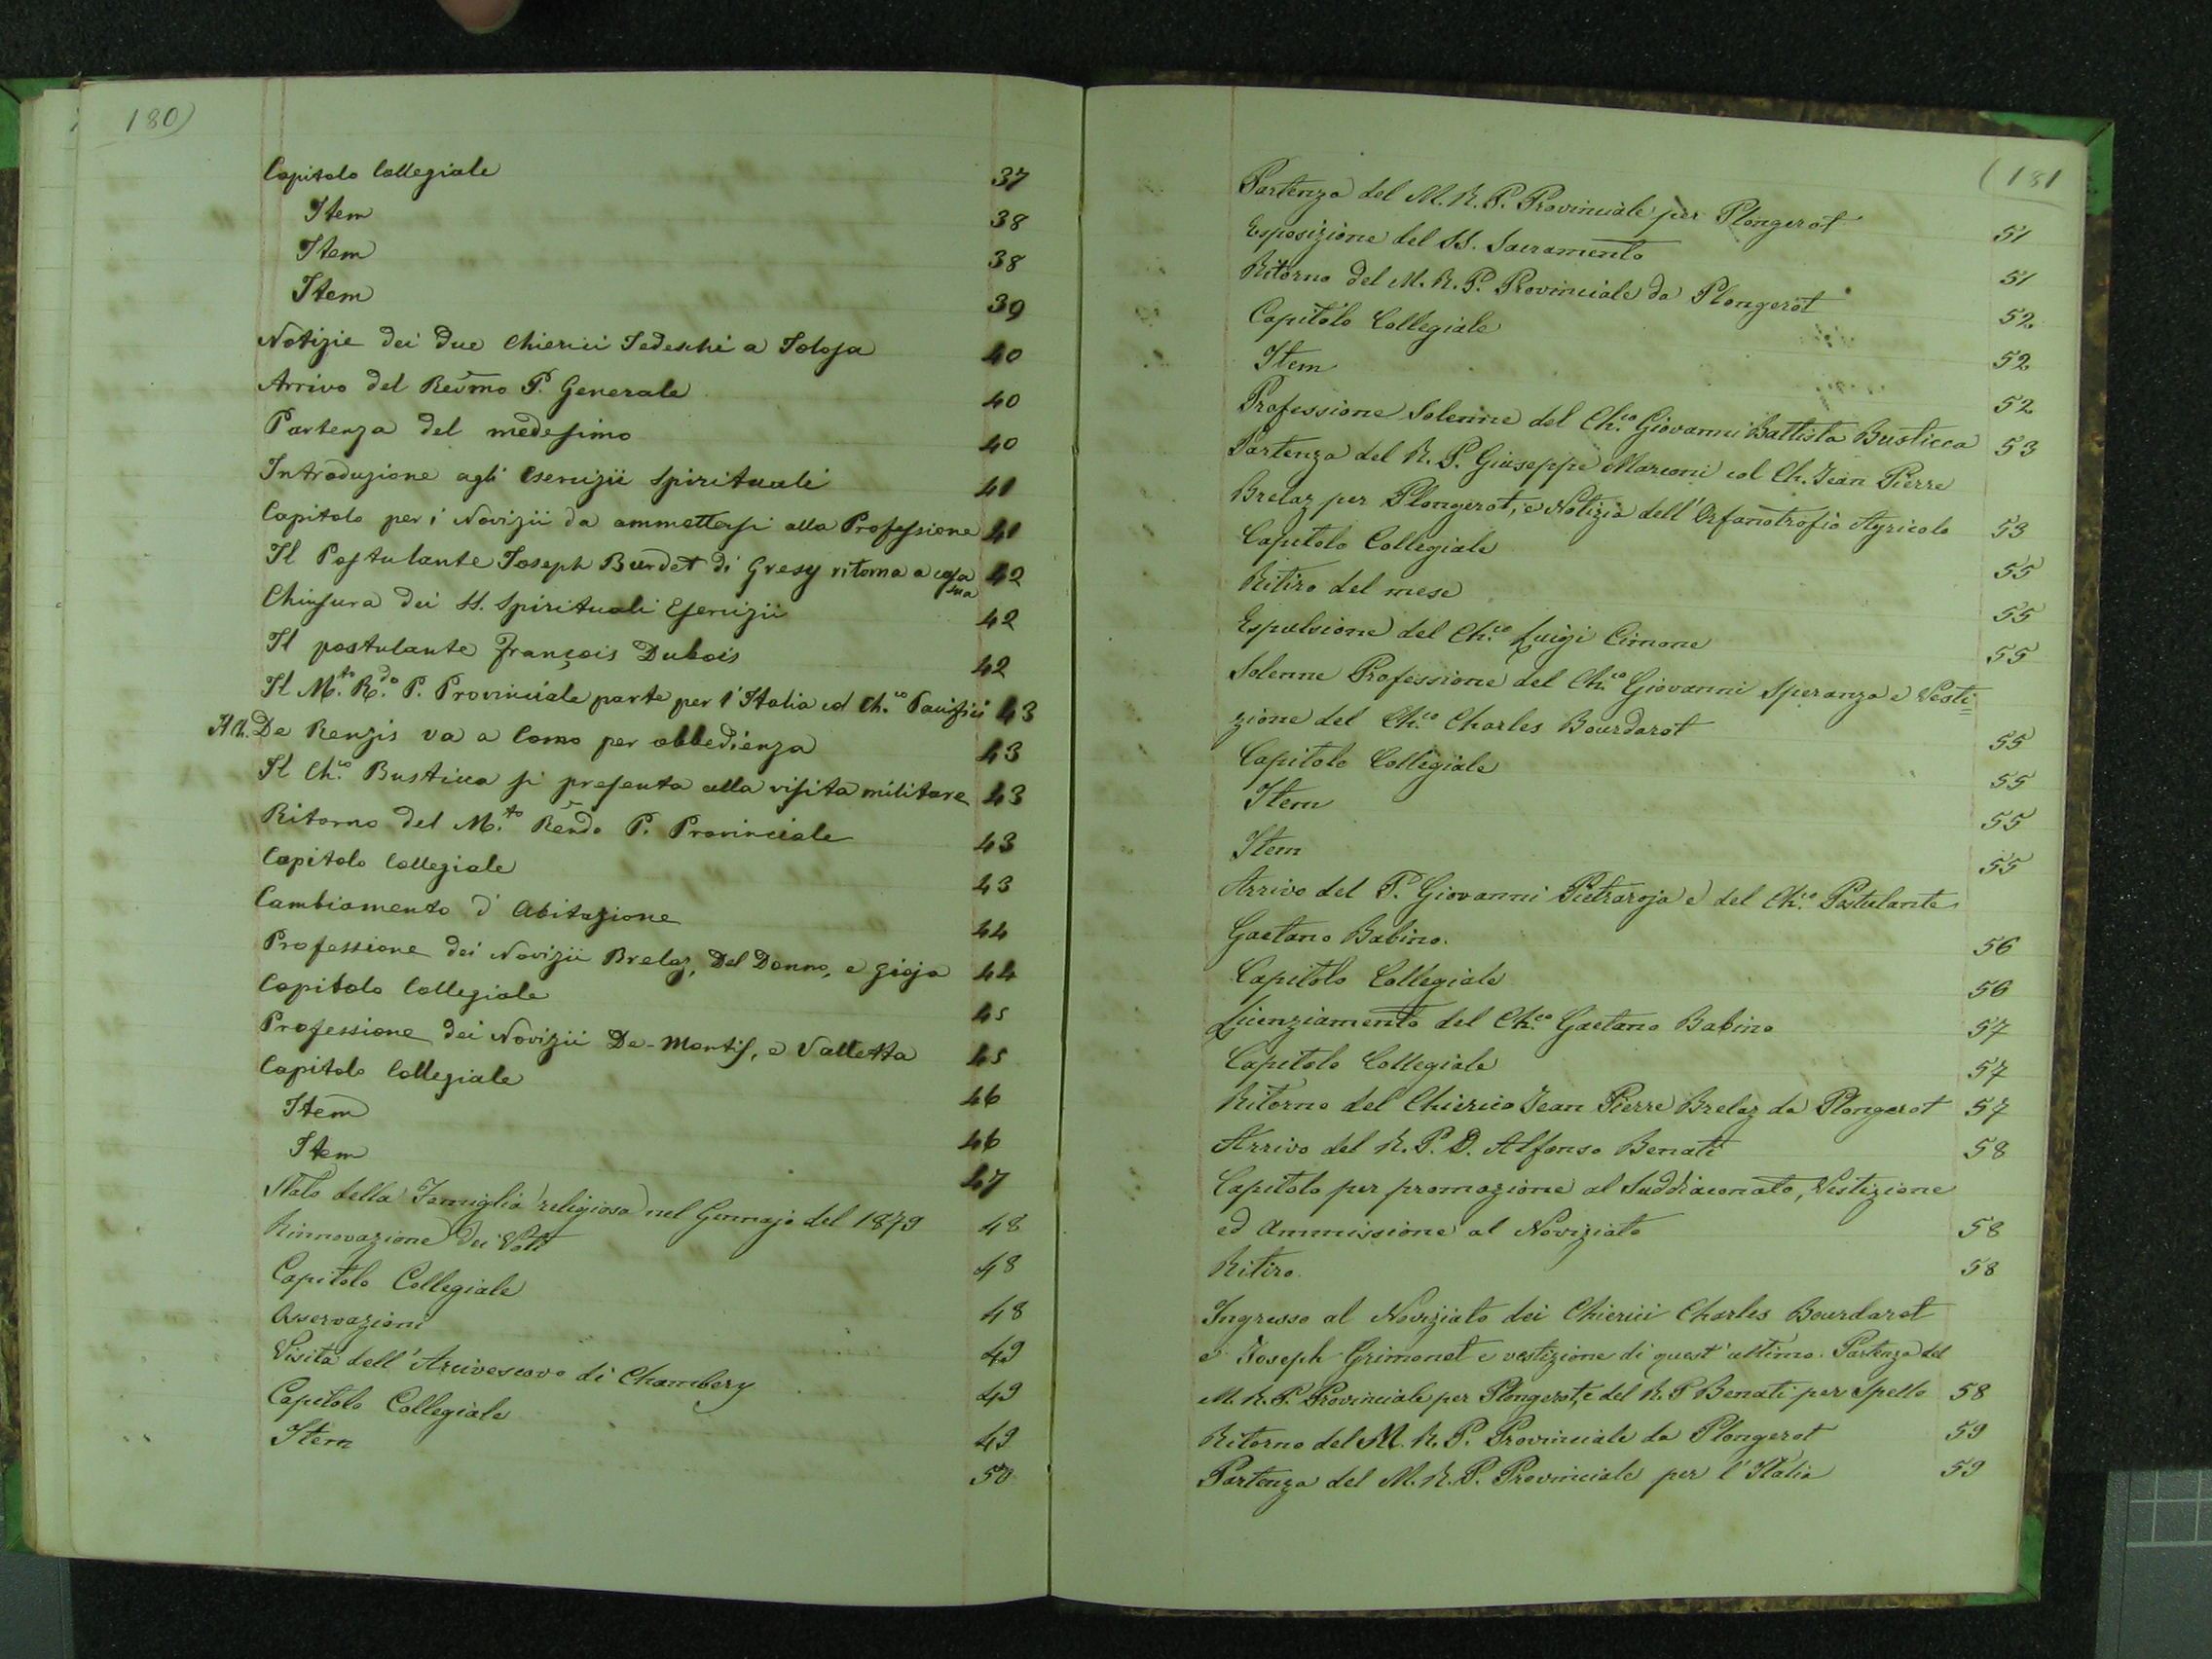 180)
Capitolo Collegiale 37
Item 38
Item 38
Item 39
Notizie dei due Chierici Tedeschi a Tolosa 40
Arrivo del Reũmo P. Generale 40
Partenza del medesimo 40
Introduzione agli Esercizii Spirituali 41
Capitolo per i Novizii da ammettersi alla Professione 41
Il Postulante Joseph Burdet di Gresy ritorna a casa sua 42
Chiusura dei SS. Spirituali Esercizii 42
Il postulante François Dubois 42
Il M.to R.do P. Provinciale parte per l'Italia col Ch.co Pacifici 43
Il Ch. De Renzis va a Como per obbedienza 43
Il Ch.co Busticca si presenta alla visita militare 43
Ritorno del M.to Rendo P. Provinciale 43
Capitolo Collegiale 43
Cambiamento d'Abitazione 44
Professione dei Novizii Brelaz, Del Donno, e Gioja 44
Capitolo Collegiale 45
Professione dei Novizii De-Mortis, e Valletta 45
Capitolo Collegiale 46
Item 46
Item 47
Stato della Famiglia religiosa nel Gennajo del 1879 48
Rinnovazione dei Voti 48
Capitolo Collegiale 48
Osservazioni 49
Visita dell'Arcivescovo di Chambery 49
Capitolo Collegiale 49
Item 50
(181
Partenza del M. R. P. Provinciale per Plongerot 51
Esposizione del SS. Sacramento 51
Ritorno del M. R. P. Provinciale da Plongerot 52
Capitolo Collegiale 52
Item 52
Professione Solenne del Ch.co Giovanni Battista Busticca 53
Partenza del R. P. Giuseppe Marconi col Ch. Jean Pierre
Brelaz per Plongerot, e Notizia dell'Orfanotrofio Agricolo 53
Capitolo Collegiale 55
Ritiro del mese 55
Espulsione del Ch.co Luigi Cimone 55
Solenne Professione del Ch.co Giovanni Speranza e Vesti=
zione del Ch.co Charles Bourdarot 55
Capitolo Collegiale 55
Item 55
Item 55
Arrivo del P. Giovanni Pietraroja e del Ch.co Postulante
Gaetano Babino. 56
Capitolo Collegiale 56
Licenziamento del Ch.co Gaetano Babino 57
Capitolo Collegiale 57
Ritorno del Chierico Jean Pierre Brelaz da Plongerot 57
Arrivo del R. P. D. Alfonso Benati 58
Capitolo per promozione al Suddiaconato, Vestizione
ed Ammissione al Noviziato 58
Ritiro. 58
Ingresso al Noviziato dei Chierici Charles Bourdarot
e Joseph Grimonet e vestizione di quest'ultimo. Partenza del
M. R. P. Provinciale per Plongerot, e del R. P Benati per Spello 58
Ritorno del M. R. P. Provinciale da Plongerot 59
Partenza del M. R. P. Provinciale per l'Italia 59